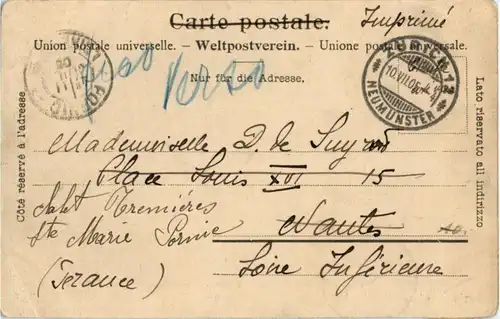 Carte postale. Imprimé
Union postale universelle. – Weltpostverein. – Unione postale universale.
Verso
Nur für die Adresse.
ZÜRICH 12
10.VII.05
NEUMÜNSTER
PORNIC
Côté réservé à l'adresse
Lato riservato all indirizzo
Mademoiselle D. de
Place Louis XVI 15
Trémières Nantes
Ste Marie
(France) Loire Inférieure